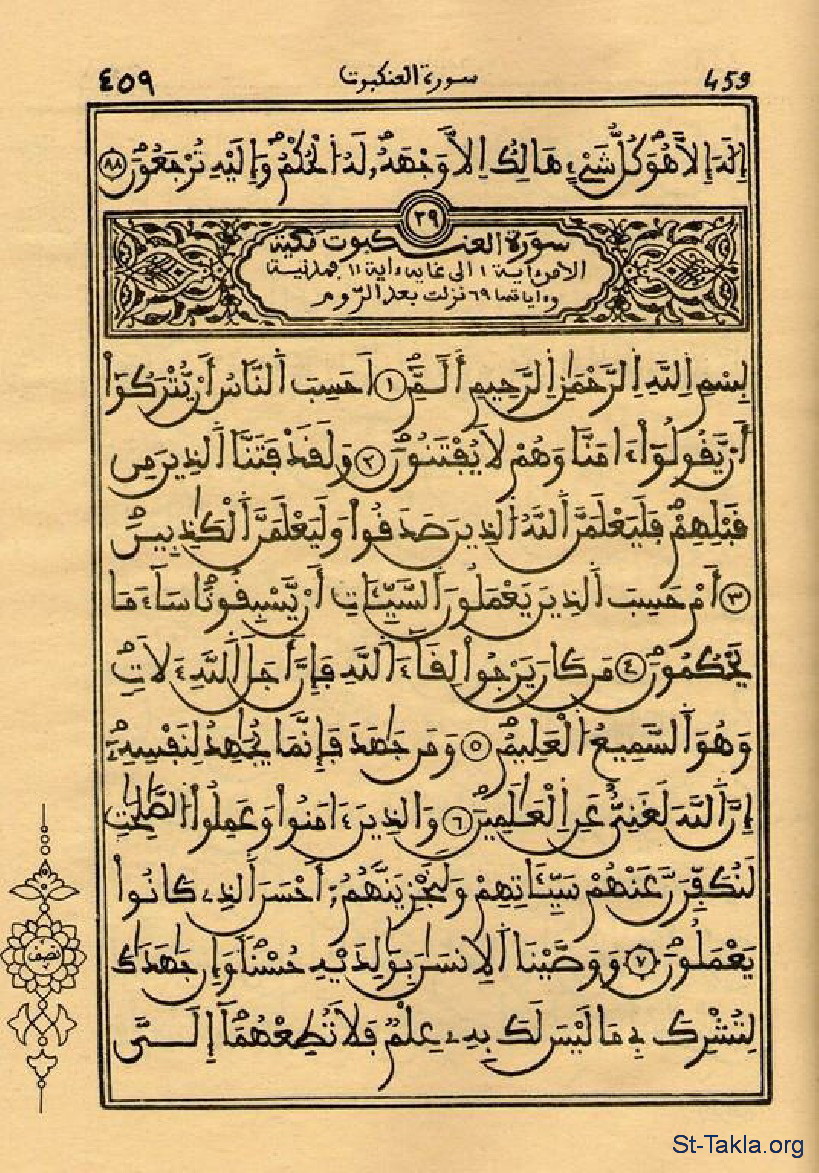 ٤٥٩ سورة العنكبوت 459
إِلَٰهَ إِلَّا هُوَ كُلُّ شَيْءٍ هَالِكٌ إِلَّا وَجْهَهُۥ لَهُ الْحُكْمُ وَإِلَيْهِ تُرْجَعُونَ ٨٨
٢٩
سورة العنكبوت مكية
الا من ءاية ١ الى غاية ءاية ١١ فمدنية
وءاياتها ٦٩ نزلت بعد الروم
بِسْمِ اللَّهِ الرَّحْمَٰنِ الرَّحِيمِ أَلَٓمِّٓ ١ أَحَسِبَ النَّاسُ أَنْ يُّتْرَكُوٓا
أَنْ يَّقُولُوٓا ءَامَنَّا وَهُمْ لَا يُفْتَنُونَ ٢ وَلَقَدْ فَتَنَّا الذِينَ مِن
قَبْلِهِمْ فَلَيَعْلَمَنَّ اللَّهُ الذِينَ صَدَقُوا وَلَيَعْلَمَنَّ الْكَٰذِبِينَ
٣ أَمْ حَسِبَ الذِينَ يَعْمَلُونَ السَّيِّـَٔاتِ أَنْ يَّسْبِقُونَا سَآءَ مَا
يَحْكُمُونَ ٤ مَن كَانَ يَرْجُوا لِقَآءَ اللَّهِ فَإِنَّ أَجَلَ اللَّهِ ءَلَاتٍ
وَهُوَ السَّمِيعُ الْعَلِيمُ ٥ وَمَن جَٰهَدَ فَإِنَّمَا يُجَٰهِدُ لِنَفْسِهِۦٓ
إِنَّ اللَّهَ لَغَنِيٌّ عَنِ الْعَٰلَمِينَ ٦ وَالذِينَ ءَامَنُوا وَعَمِلُوا الصَّٰلِحَٰتِ
لَنُكَفِّرَنَّ عَنْهُمْ سَيِّـَٔاتِهِمْ وَلَنَجْزِيَنَّهُمُۥٓ أَحْسَنَ الذِے كَانُوا
يَعْمَلُونَ ٧ وَوَصَّيْنَا الْإِنسَٰنَ بِوَٰلِدَيْهِ حُسْنًا وَإِن جَٰهَدَٰكَ
لِتُشْرِكَ بِے مَا لَيْسَ لَكَ بِهِۦ عِلْمٌ فَلَا تُطِعْهُمَآ إِلَىَّ
نصف
St-Takla.org